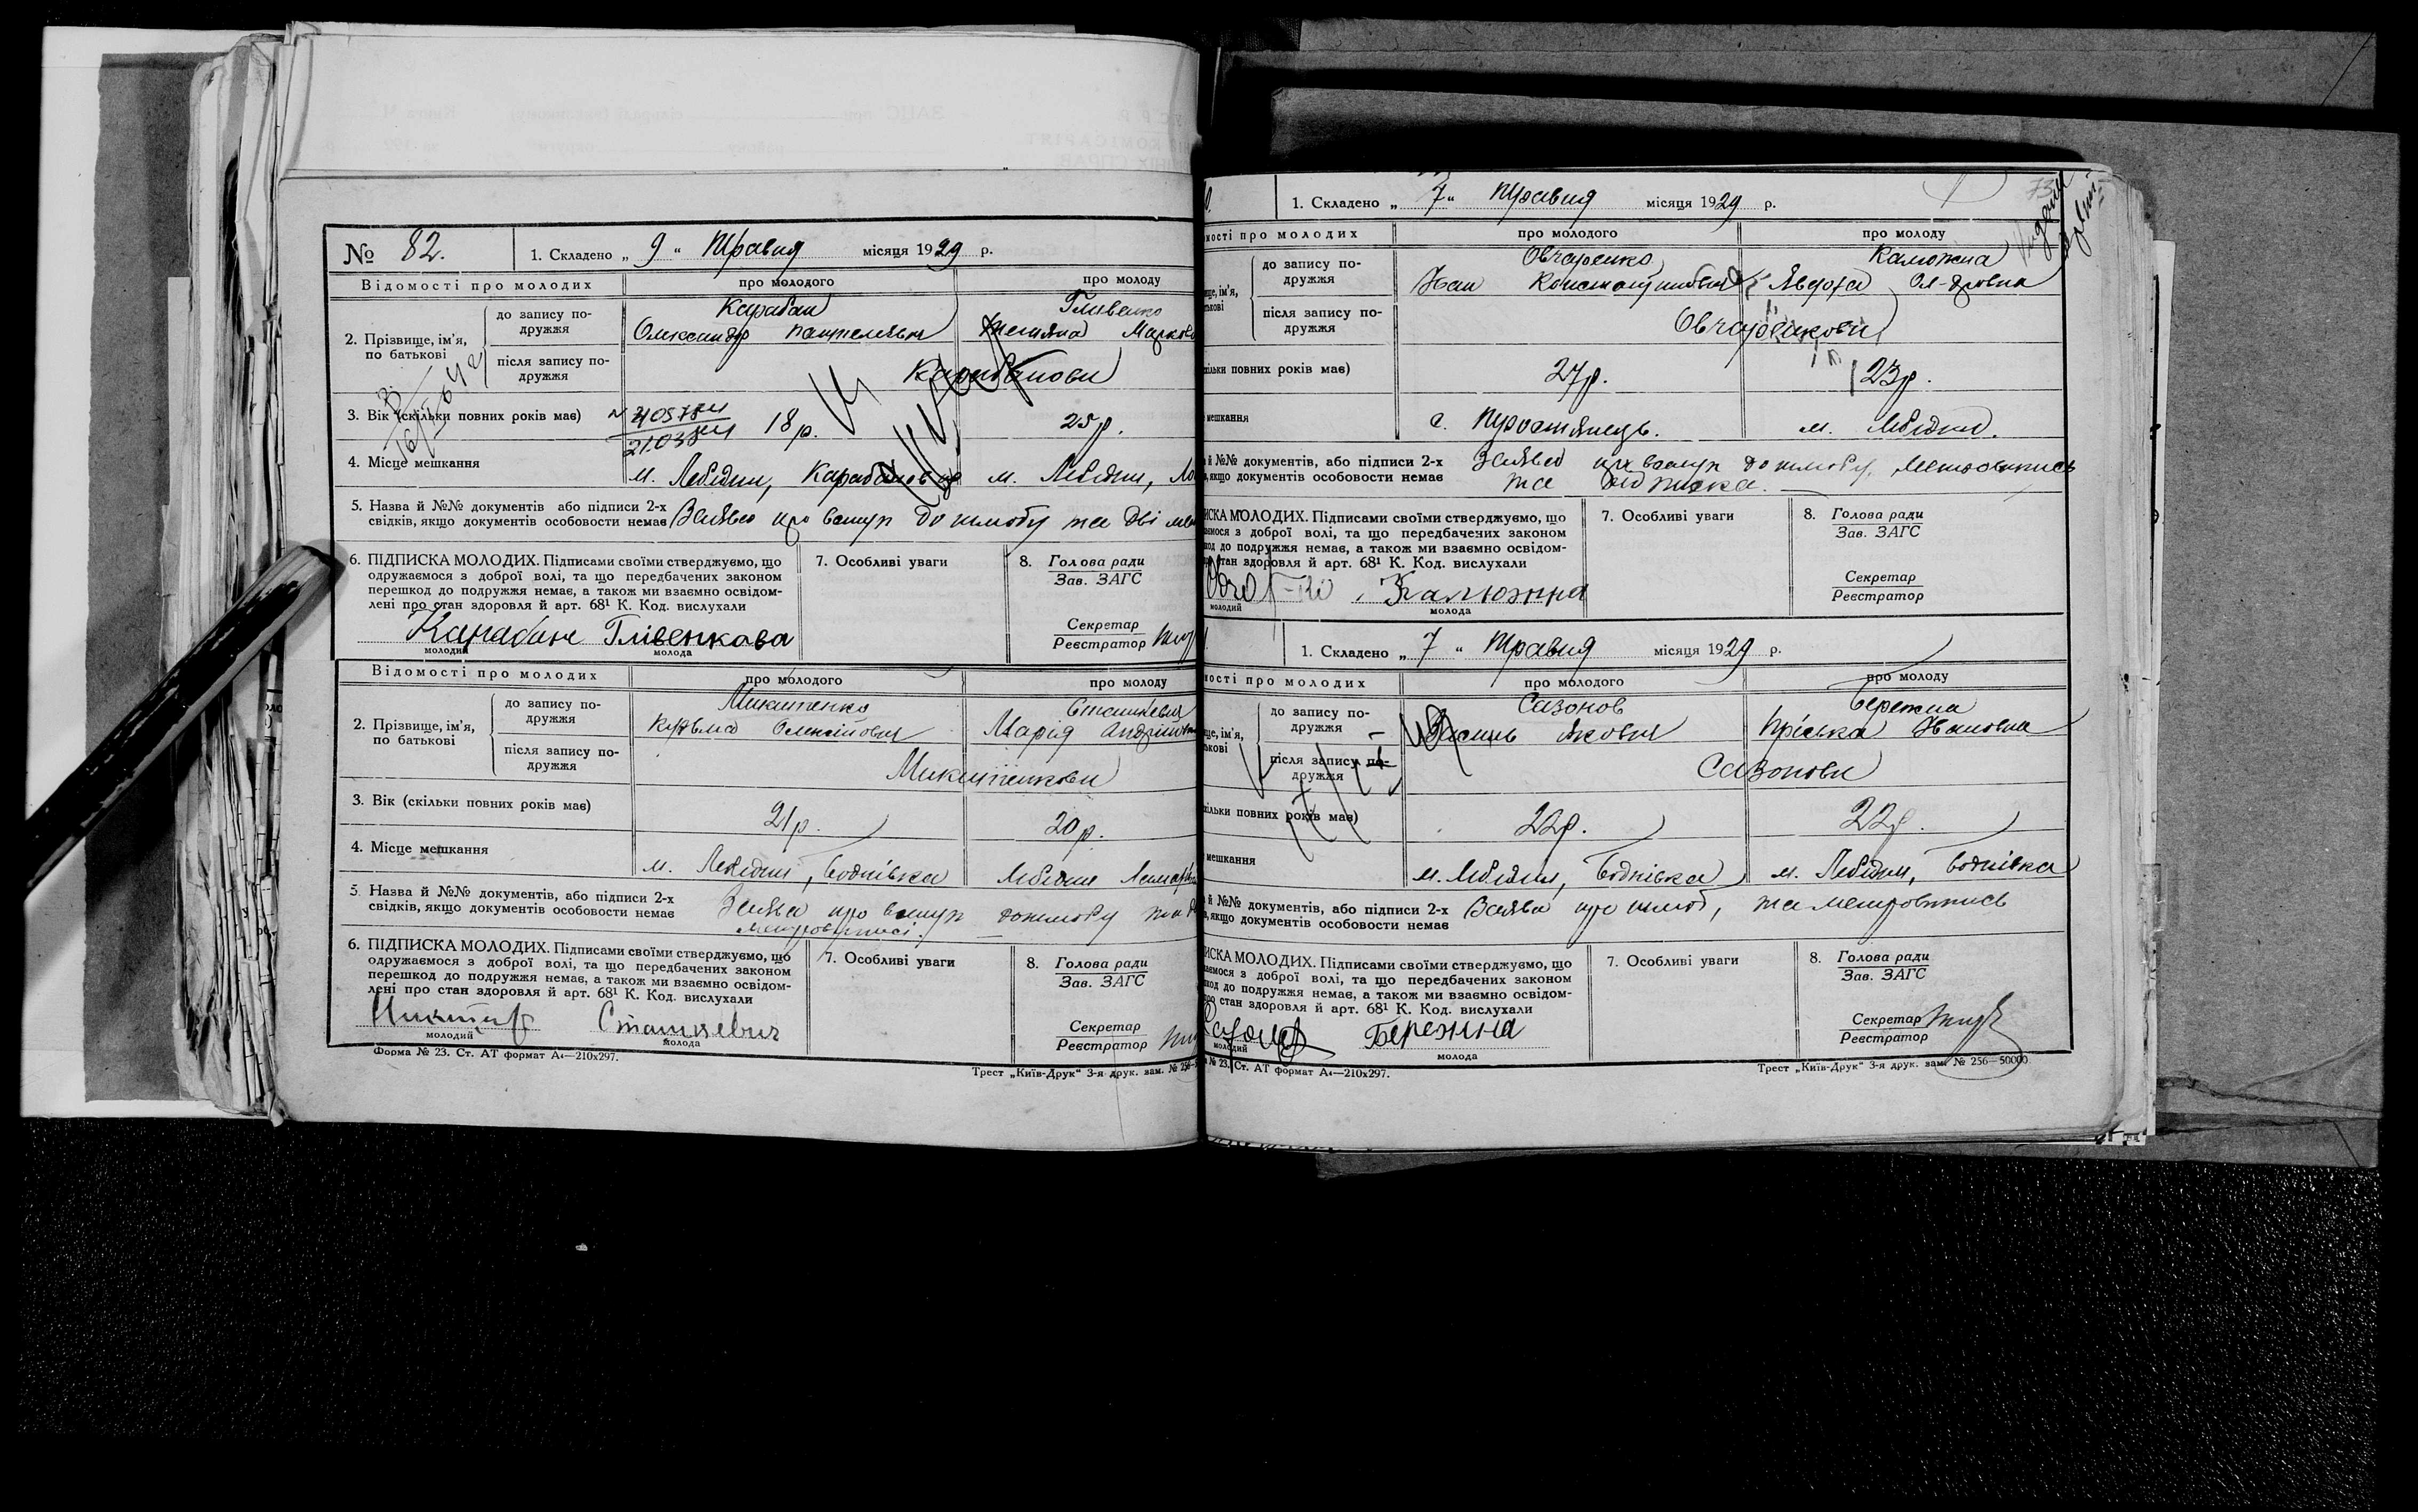 № 82.
1. Складено „ 9 “ Травня місяця 1929 р.
Відомості про молодих
про молодого
про молоду
2. Прізвище, ім'я, по батькові
до запису по-
дружжя
Карабан
Олександр Пантелійм
Глівенко
Тетяна Марков
після запису по-
дружжя
Карабанови
3. Вік (скільки повних років має)
18 р.
25 р.
4. Місце мешкання
м. Лебедин, Карабанівка
м. Лебедин,
5. Назва й №№ документів або підписи 2-х
свідків, якщо документів особовости немає
Заява про вступ до шлюбу та дві
6. ПІДПИСКА МОЛОДИХ. Підписами своїми стверджуємо, що
одружаємося з доброї волі, та що передбачених законом
перешкод до подружжя немає, а також ми взаємно освідом-
лені про стан здоровля й арт. 68¹ К. Код. вислухали
Карабан Глівенкова
молодий молода
7. Особливі уваги
8. Голова ради
Зав. ЗАГС
Секретар
Реєстратор
Відомості про молодих
про молодого
про молоду
2. Прізвище, ім'я,
по батькові
до запису по-
дружжя
Микитенко
Кузьма Олексійович
Сташкевич
Марія Андріївн
після запису по-
дружжя
Микитенкови
3. Вік (скільки повних років має)
21 р.
20 р.
4. Місце мешкання
м. Лебедин, Боднівка
Лебедин
5. Назва й №№ документів, або підписи 2-х
свідків, якщо документів особовости немає
Заява про вступ до шлюбу та
6. ПІДПИСКА МОЛОДИХ. Підписами своїми стверджуємо, що
одружаємося з доброї волі, та що передбачених законом
перешкод до подружжя немає, а також ми взаємно освідом-
лені про стан здоровля й арт. 68¹ К. Код. вислухали
Сташкевич
молодий молода
7. Особливі уваги
8. Голова ради
Зав. ЗАГС
Секретар
Реєстратор
Форма № 23. Ст. АТ формат А₄—210х297.
Трест „Київ-Друк“ 3-я друк. зам. № 256
1. Складено „ 7 “ Травня місяця 1929 р.
73
мості про молодих
про молодого
про молоду
до запису по-
дружжя
Овчаренко
Іван Константинович
Калюжна
Явдоха Ол-дровна
після запису по-
дружжя
Овчаренкови
кільки повних років має)
27 р.
23 р.
мешкання
с. Тростянець.
м. Лебедин.
й №№ документів, або підписи 2-х
якщо документів особовости немає
Заява про вступ до шлюбу, метровипись
та підписка.
ИСКА МОЛОДИХ. Підписами своїми стверджуємо, що
ємося з доброї волі, та що передбачених законом
од до подружжя немає, а також ми взаємно освідом-
стан здоровля й арт. 68¹ К. Код. вислухали
Калюжна
молодий молода
7. Особливі уваги
8. Голова ради
Зав. ЗАГС
Секретар
Реєстратор
1. Складено „ 7 “ Травня місяця 1929 р.
ності про молодих
про молодого
про молоду
до запису по-
дружжя
Сазонов
Василь Якович
Бережна
Пріська Івановна
після запису по-
дружжя
Сазонови
кільки повних років має)
22 р.
22 р.
мешкання
м. Лебедин, Боднівка
м. Лебедин, Боднівка
й №№ документів, або підписи 2-х
якщо документів особовости немає
Заява про шлюб, та метровипись
ИСКА МОЛОДИХ. Підписами своїми стверджуємо, що
ємося з доброї волі, та що передбачених законом
од до подружжя немає, а також ми взаємно освідом-
ро стан здоровля й арт. 68¹ К. Код. вислухали
Бережна
молодий молода
7. Особливі уваги
8. Голова ради
Зав. ЗАГС
Секретар
Реєстратор
№ 23. Ст. АТ формат А₄—210х297.
Трест „Київ-Друк“ 3-я друк. зам. № 256—50000